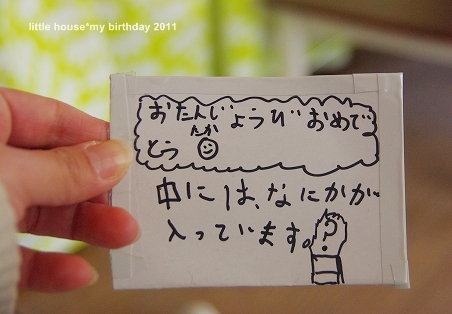 little house*my birthday 2011
おたんじょうびおめで
たか
とう
中には、なにかが
入っています。
?